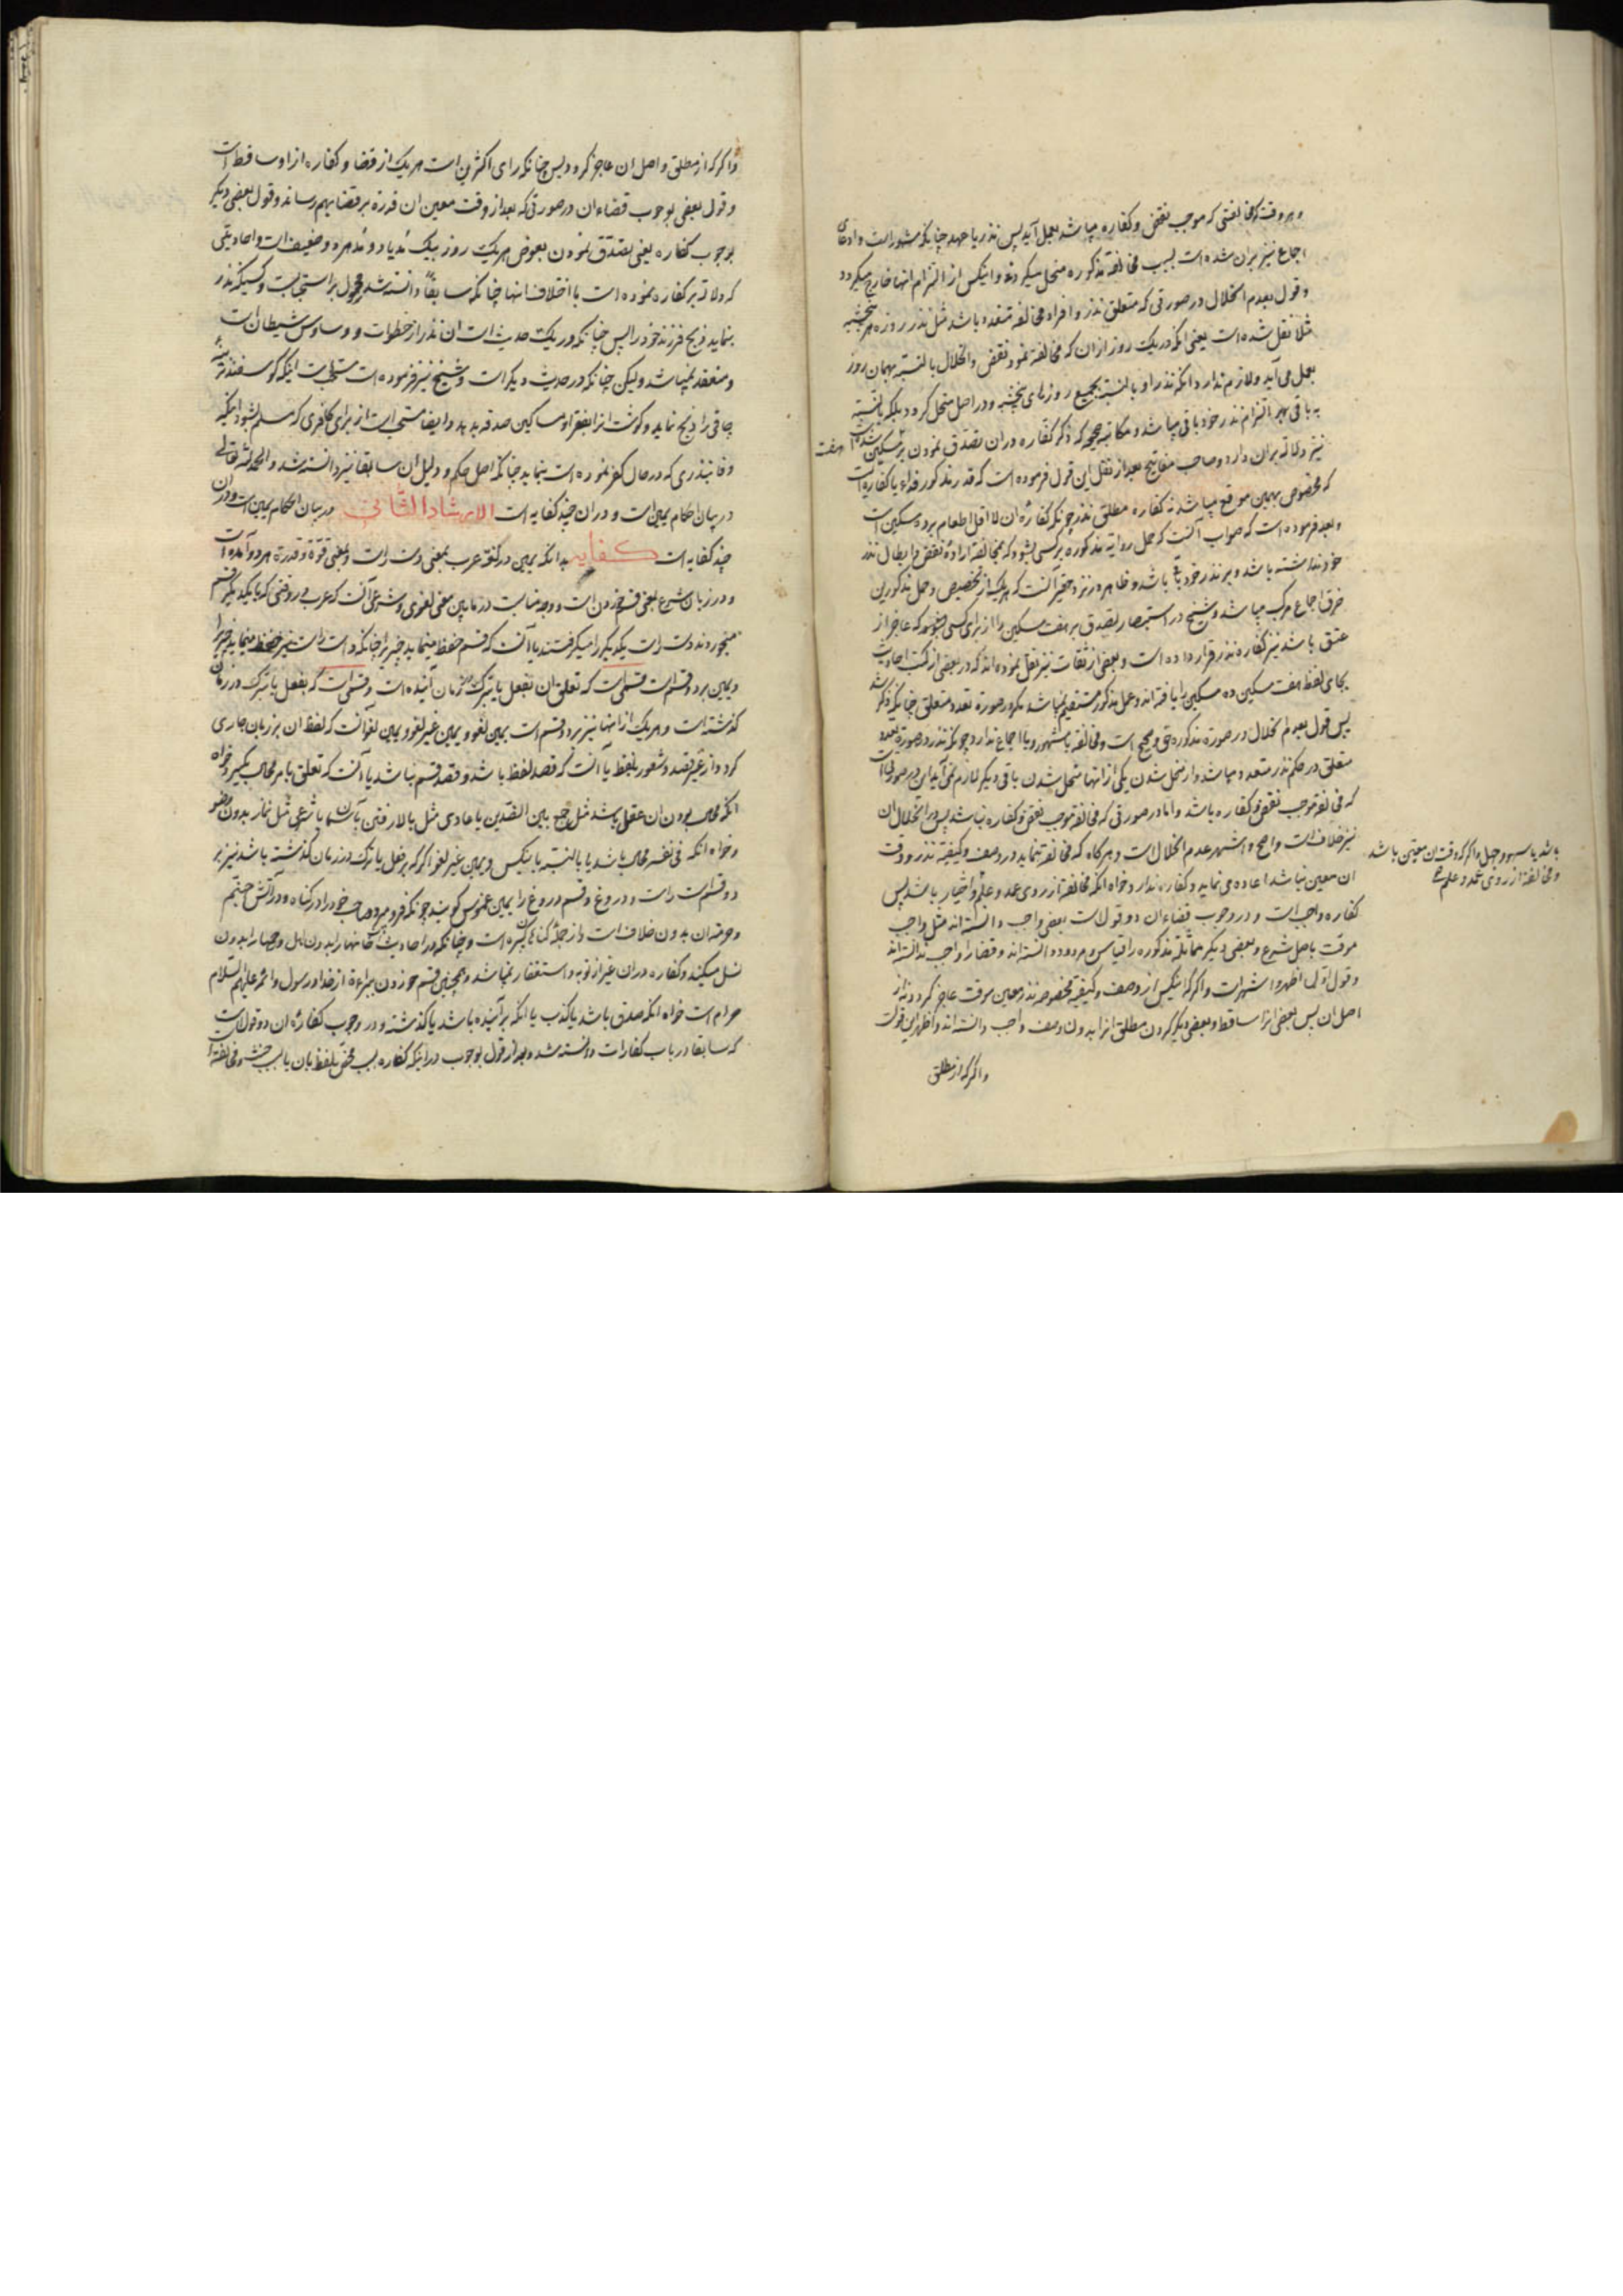 و هر وقت که مخالفتی که موجب نقض و کفاره میباشد بعمل آید پس نذر یا عهد چنانکه مشهور است و ادعای
اجماع نیز بران شده است بسبب مخالفة مذکوره منحل میکردند و اینکس از التزام انها خارج میکردد
و قول بعدم انحلال در صورتی که متعلق نذر و افراد مخالفة متعدد باشد مثل نذر روزه هر پنجشنبه
مثلا نقل شده است یعنی انکه در یک روز ازان که مخالفة نمود نقض و انحلال بالنسبة بهمان روز
بعمل می آید و لازم ندارد انکه نذر او بالنسبة بجمیع روزهای پنجشنبه و در اصل منحل کردد بلکه بالنسبة
به باقی بهر التزام نذر خود باقی میباشد و مکاتبه صحیحه که ذکر کفاره دران تصدق نمودن بر هفت مسکین شده است
نیز دلالة بران دارد و صاحب مفاتیح بعد از نقل این قول فرموده است که قدر مذکور فداء یا کفاره است
که مخصوص بهمین موقع میباشد نه کفاره مطلق نذر چونکه کفاره ان لا اقل اطعام بر ده مسکین است
و بعد فرموده است که صواب آنست که حمل روایة مذکوره بر کسی بشود که بمخالفة ارادهٔ نقض و ابطال نذر
خود نداشته باشد و بر نذر خود باقی باشد و ظاهر در نزد حقیر آنست که هر یک از تخصیص و حمل مذکورین
خرق اجماع مرکب میباشد و شیخ در استبصار تصدق بر هفت مسکین را از برای کسی که عاجز از
عتق باشد نیز کفاره نذر قرار داده است و بعضی از ثقات نیز نقل نموده اند که در بعضی از کتب احادیث
بجای لفظ هفت مسکین ده مسکین را یافته اند و حمل مذکور مستقیم نمیباشد مکر در صورة تعدد متعلق چنانکه ذکر شد
پس قول بعدم انحلال در صورة مذکوره حق و صحیح است و مخالفة با مشهور و یا اجماع ندارد چونکه نذر در صورة تعدد
متعلق در حکم نذر متعدد میباشد و از منحل شدن یکی از انها منحل شدن باقی دیکر لازم نمی آید این در صورتی است
که مخالفة موجب نقض و کفاره باشد و اما در صورتی که مخالفة موجب نقض و کفاره نباشد پس در انحلال ان
نیز خلاف است و اصح و اشهر عدم انحلال است و هر کاه که مخالفة نماید در وصف و کیفیة نذر و وقت
باشد یا سهو و جهل و اکر که وقت ان معین باشد
و مخالفة از روی عمد و علم صح
ان معین نباشد اعاده می نماید و کفاره ندارد خواه انکه مخالفة از روی عمد و علم و اختیار باشد پس
کفاره واجب است و در وجوب قضاء ان دو قول است بعضی واجب دانسته اند مثل واجب
موقت باصل شرع و بعضی دیکر مماثلة مذکوره را قیاس و مردود دانسته اند و قضا را واجب ندانسته اند
و قول اولی اظهر و اشهر است و اکر که اینکس از وصف و کیفیة مخصوصه نذر معین موقت عاجز کردد نه از
اصل ان پس بعضی انرا ساقط و بعضی دیکر کردن مطلق انرا بدون وصف واجب دانسته اند و اظهر این قول است
و اکر که از مطلق
و اکر که از مطلق و اصل ان عاجز کردد پس چنانکه رای اکثرین است هر یک از قضا و کفاره از او ساقط است
و قول بعضی بوجوب قضاء ان در صورتی که بعد از وقت معین ان قدرة بر قضا بهم رساند و قول بعضی دیکر
بوجوب کفاره یعنی بتصدق نمودن بعوض هر یک روز بیک مد یا دو مد هر دو ضعیف است و احادیثی
که دلالة بر کفاره نموده است با اختلاف انها چنانکه سابقا دانسته شد محمول بر استحباب است و کسیکه نذر
بنماید ذبح فرزند خود را پس چنانکه در یک حدیث است ان نذر از خطوات و وساوس شیطان است
و منعقد نمیباشد و لیکن چنانکه در حدیث دیکر است و شیخ نیز فرموده است مستحب است اینکه کوسفند
چاقی را ذبح نماید و کوشت انرا بفقراء و مساکین صدقه بدهد و ایضا مستحب است از برای کافری که مسلم بشود اینکه
وفا بنذری که در حال کفر نموده است بنماید چنانکه اصل حکم و دلیل ان سابقا نیز دانسته شد و الحمد لله تعالی
در بیان احکام یمین است و دران چند کفایه است الارشاد الثانی در بیان احکام یمین است و دران
چند کفایه است کفایه بدانکه یمین در لغة عرب بمعنی دست راست و بمعنی قوة و قدرة هر دو آمده است
و در زبان شرع بمعنی قسم خوردن است و وجه مناسبت در مابین معنی لغوی و شرعی آنست که عرب در وقتی که با یکدیکر قسم
میخوردند دست راست یکدیکر را میکرفتند یا آنست که قسم حفظ مینماید چیزیرا چنانکه دست راست نیز حفظ مینماید چیزیرا
و یمین بر دو قسم است قسمی است که تعلق ان بفعل یا بترک در زمان آینده است و قسمی است که بفعل یا بترک در زمان
کذشته است و هر یک از انها نیز بر دو قسم است یمین لغو و یمین غیر لغو و یمین لغو آنست که لفظ ان بر زبان جاری
کردد از غیر قصد و شعور بلفظ یا آنست که قصد لفظ باشد و قصد قسم نباشد یا آنست که تعلق بامر محالی بکیرد خواه
انکه محالی بودن ان عقلی باشد مثل جمع بین الضدین یا عادی مثل بالا رفتن بآسمان یا شرعی مثل نماز بدون وضو
و خواه انکه فی نفسه محال باشد یا بالنسبة باینکس و یمین غیر لغو اکر که بر فعل یا ترک در زمان کذشته باشد نیز بر
دو قسم است راست و دروغ و قسم دروغ را یمین غموس کویند چونکه فرو میبرد صاحب خود را در کناه و در آتش جهنم
و حرمة ان بدون خلاف است و از جملهٔ کناهان کبیره است و چنانکه در احادیث است خانها را بدون اهل و رحمها را بدون
نسل میکند و کفاره دران غیر از توبه و استغفار نمیباشد و همچنین قسم خوردن ببراءة از خدا و رسول و ائمه علیهم السلام
حرام است خواه انکه صدق باشد یا کذب یا انکه بر آینده باشد یا کذشته و در وجوب کفارهٔ ان دو قول است
که سابقا در باب کفارات دانسته شده بعد از قول بوجوب در اینکه کفاره بسبب محض تلفظ بان یا بسبب حنث و مخالفة